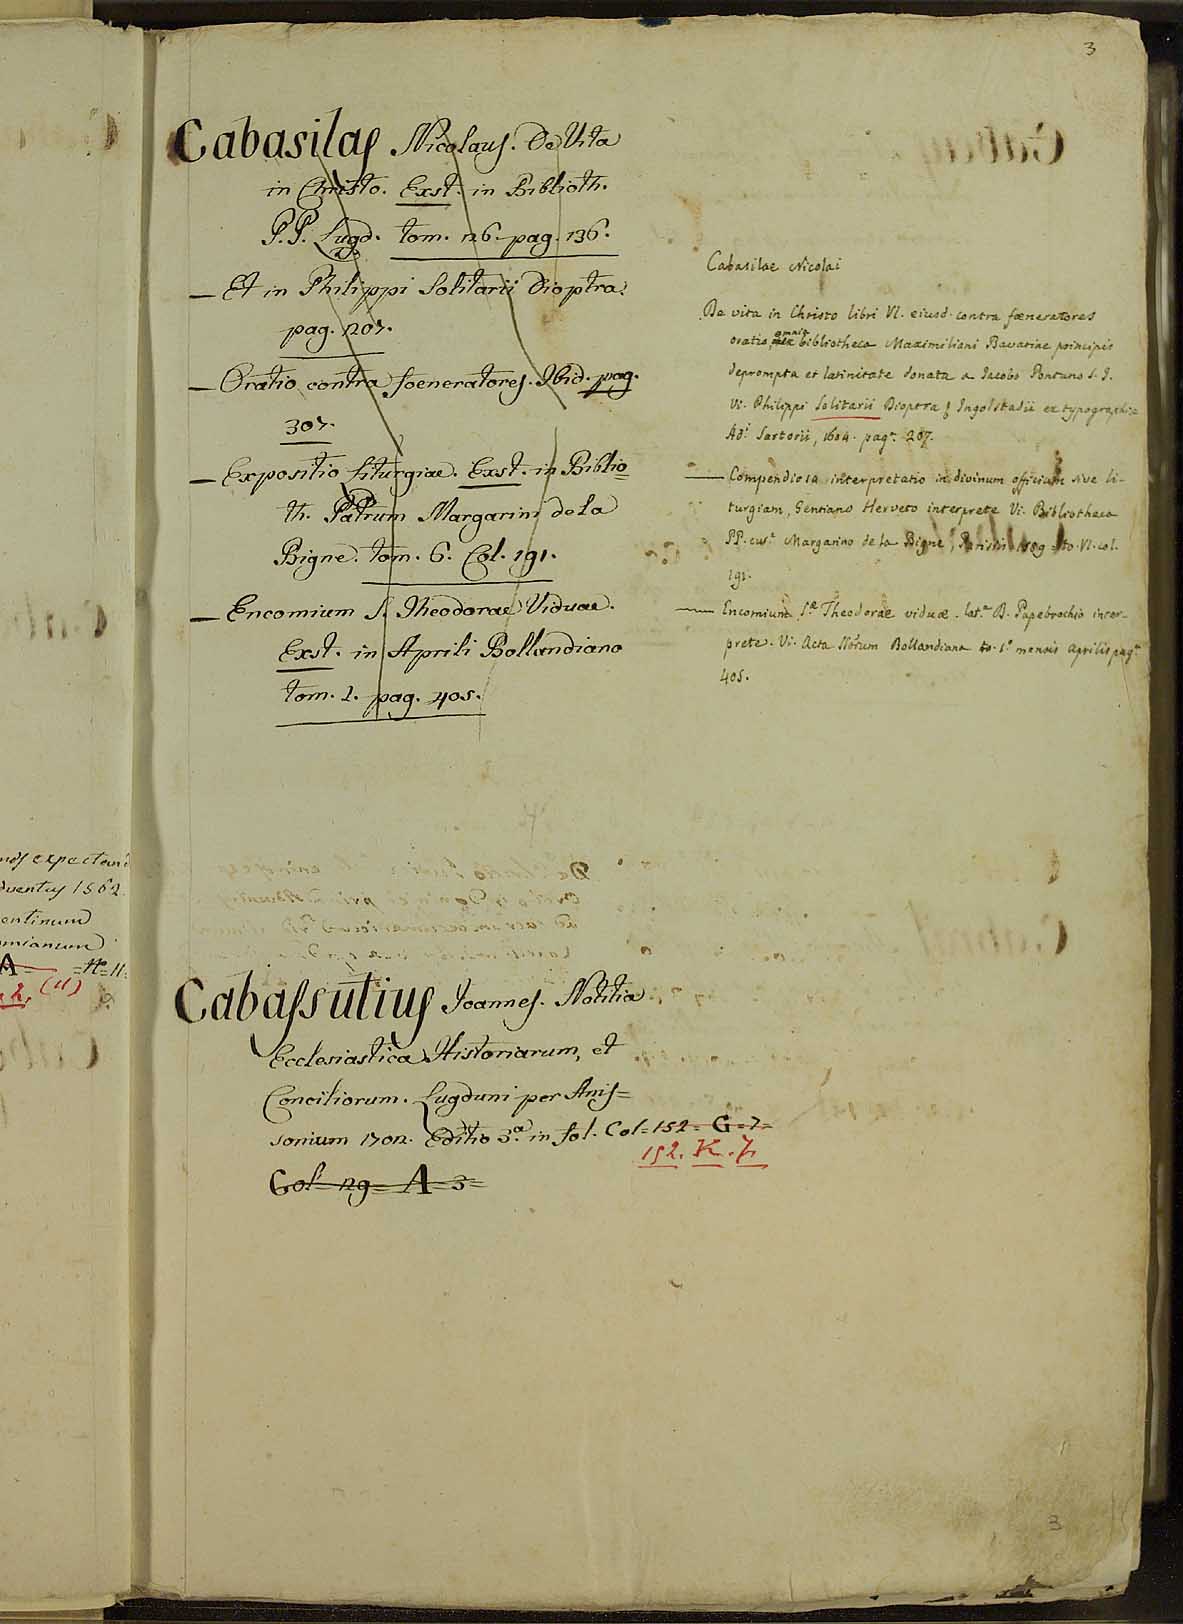 3
Cabasilas Nicolaus. De Vita
in Christo. Exst. in Biblioth.
P.P. Lugd. tom. 26. pag. 136.
— Et in Philippi Solitarii Dioptra.
pag. 207.
— Oratio contra foeneratores. Ibid. pag.
307.
— Expositio Liturgiae. Exst. in Biblio=
th. Patrum Margarini de la
Bigne. tom. 6. Col. 191.
— Encomium S. Theodorae Viduae.
Exst. in Aprili Bollandiano
tom. 1. pag. 405.
Cabasilae Nicolai
De vita in Christo libri VI. eiusd. contra fœneratores
oratio, omnia bibliotheca Maximiliani Bavariae principis
deprompta et latinitate donata a Iacobo Pontano S. I.
Vi. Philippi Solitarii Dioptra Ingolstadii ex typographia
Ad. Sartorii, 1604. pag. 207.
— Compendiosa interpretatio in divinum officium sive li-
turgiam, Gentiano Herveto interprete Vi. Bibliotheca
PP. cus. Margarino de la Bigne, Parisiis to. VI. col.
191.
— Encomium S.æ Theodorae viduæ. lat.e D. Papebrochio inter-
prete. Vi. Acta SSrum Bollandiana to. 1.º mensis aprilis pag.
405.
expectan
dventus 1562.
entinum
mianum
A = Nº = 11 =
2. (11)
Cabassutius Joannes. Notitia
Ecclesiastica Historiarum, et
Conciliorum. Lugduni per Anis=
sonium 1702. Editio 3.ª in fol. Col = 152 = G = 7 =
152. K. 7.
Col = 29 = A = 3 =
3